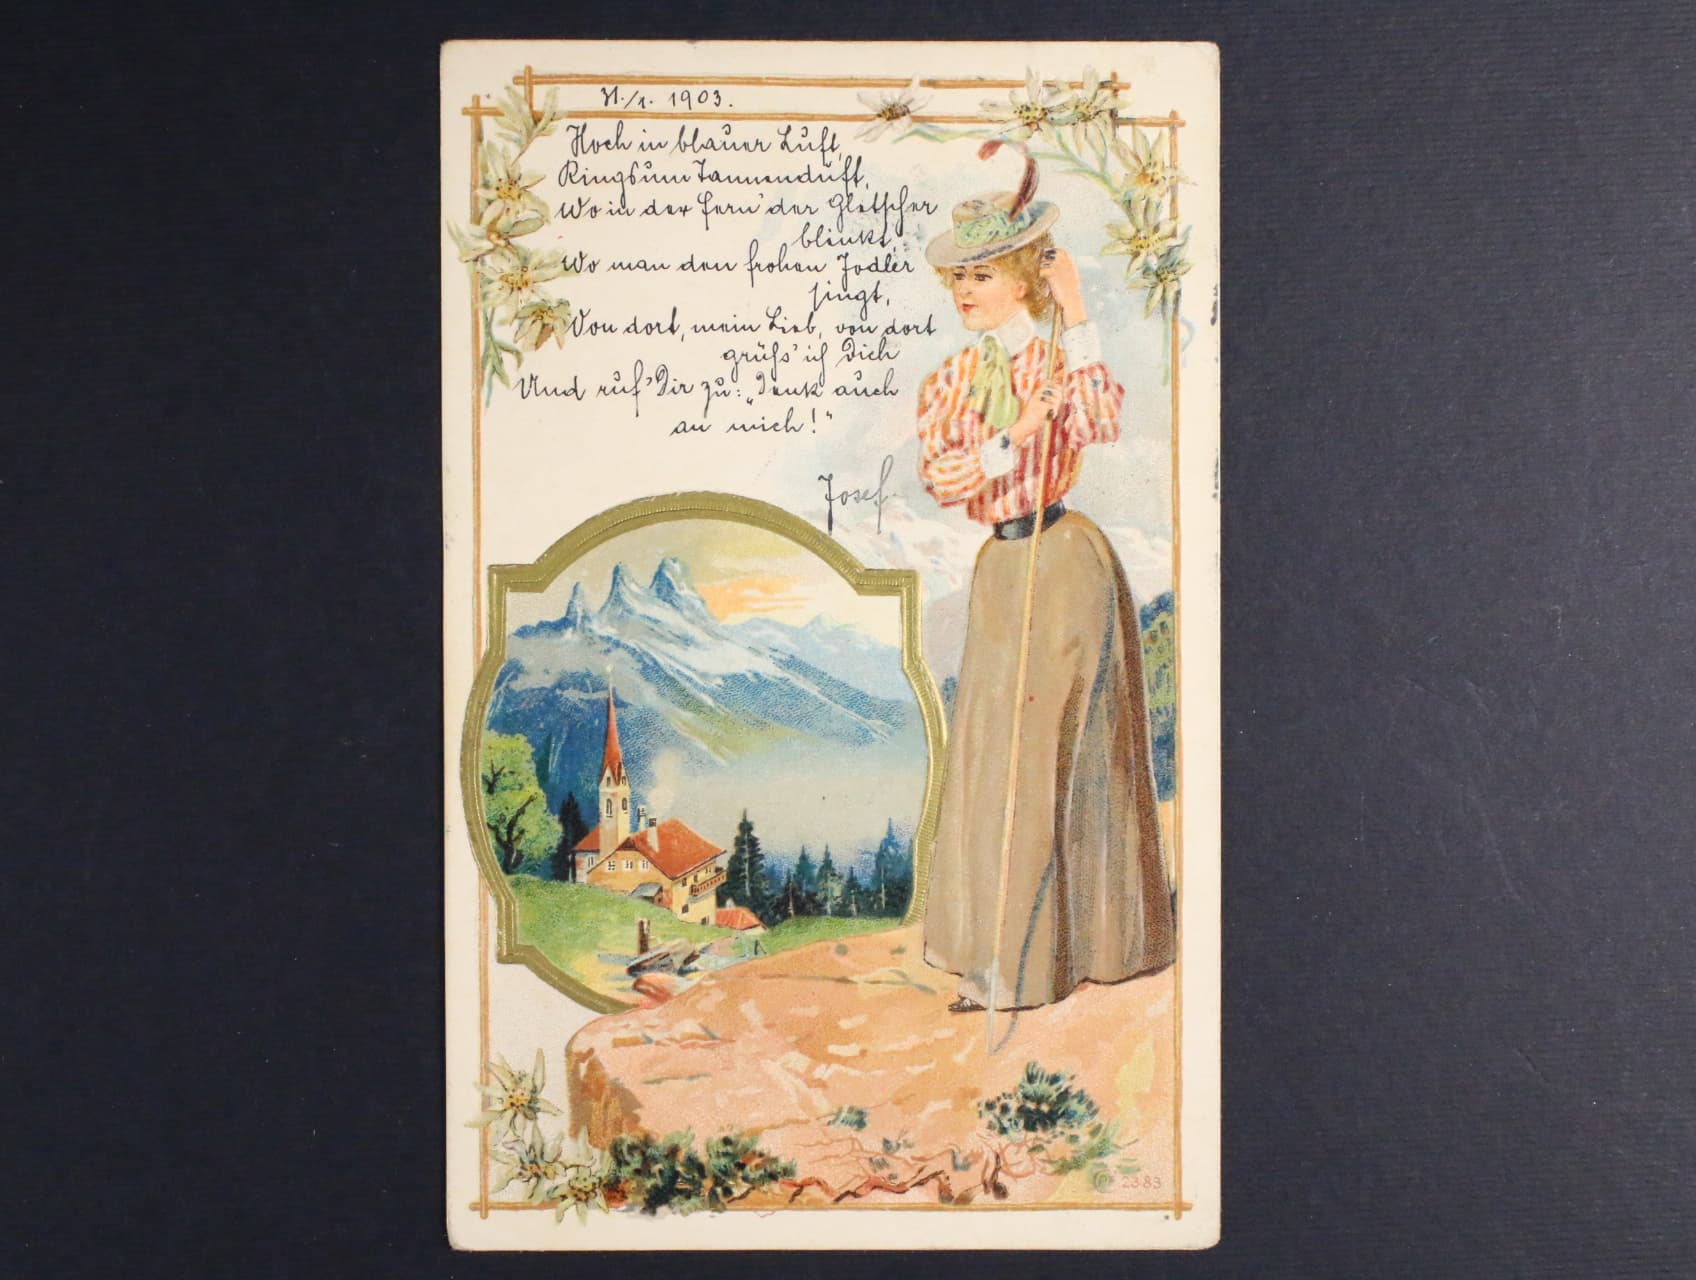 31./1. 1903.
Hoch in blauer Luft,
Ringsum Tannenduft,
Wo in der Fern' der Gletscher
blinkt,
Wo man den frohen Jodler
singt,
Von dort, mein Lieb, von dort
grüß' ich Dich
Und ruf' Dir zu: „Denk auch
an mich!"
Josef
2383